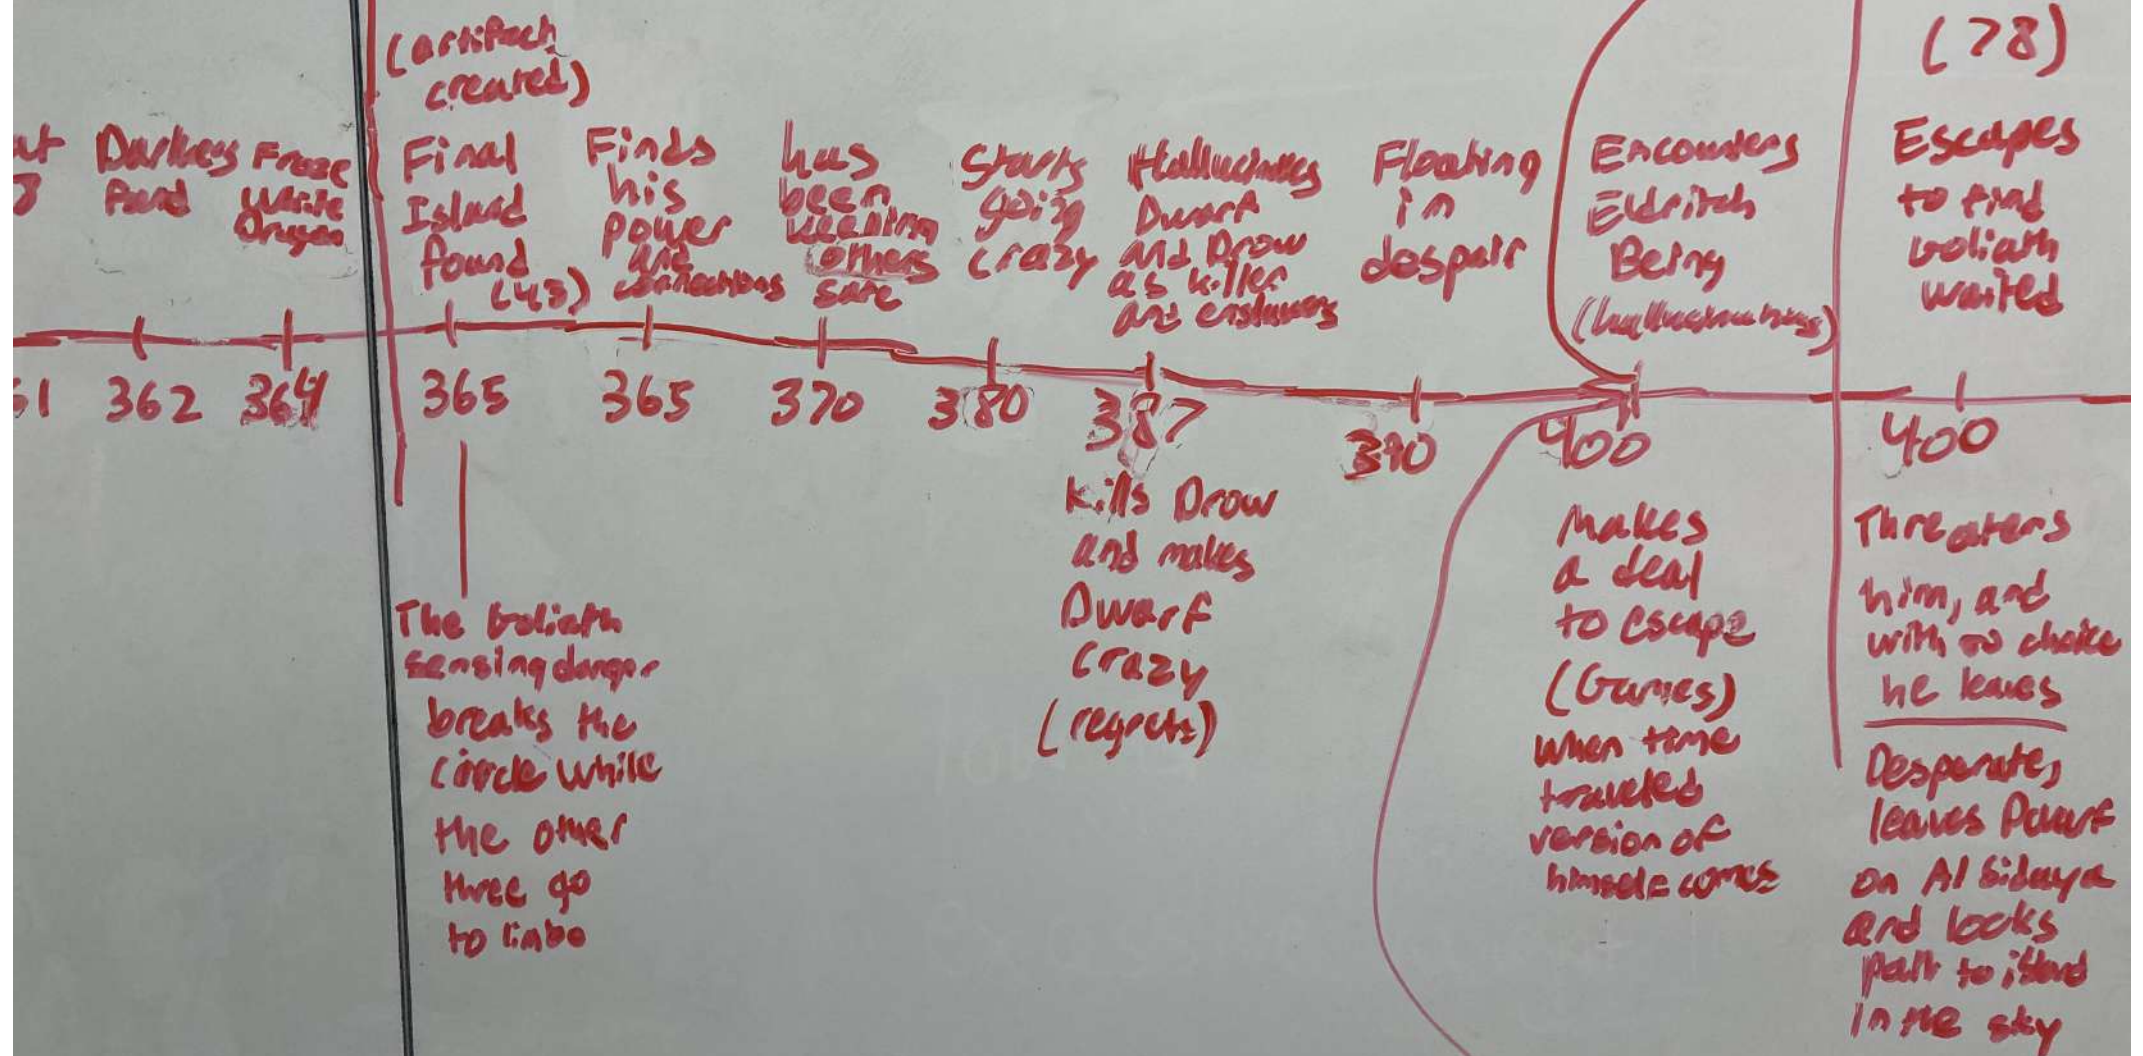 (artifact
created)
Final
Island
found
(43)
Finds
his
power
and
connections
has
been
keeping
others
safe
Starts
going
crazy
Hallucinates
Dwarf
and Drow
as killer
and enslavers
Floating
in
despair
Encounters
Eldritch
Being
(hallucinating)
(78)
Escapes
to find
Goliath
waited
Froze
White
Dragon
362
364
365
365
370
380
387
390
400
400
The Goliath
sensing danger
breaks the
circle while
the other
three go
to limbo
Kills Drow
and makes
Dwarf
crazy
(regrets)
Makes
a deal
to escape
(Games)
when time
traveled
version of
himself comes
Threatens
him, and
with no choice
he leaves
Desperate,
leaves Dwarf
on Al Sidaya
and locks
path to island
in the sky